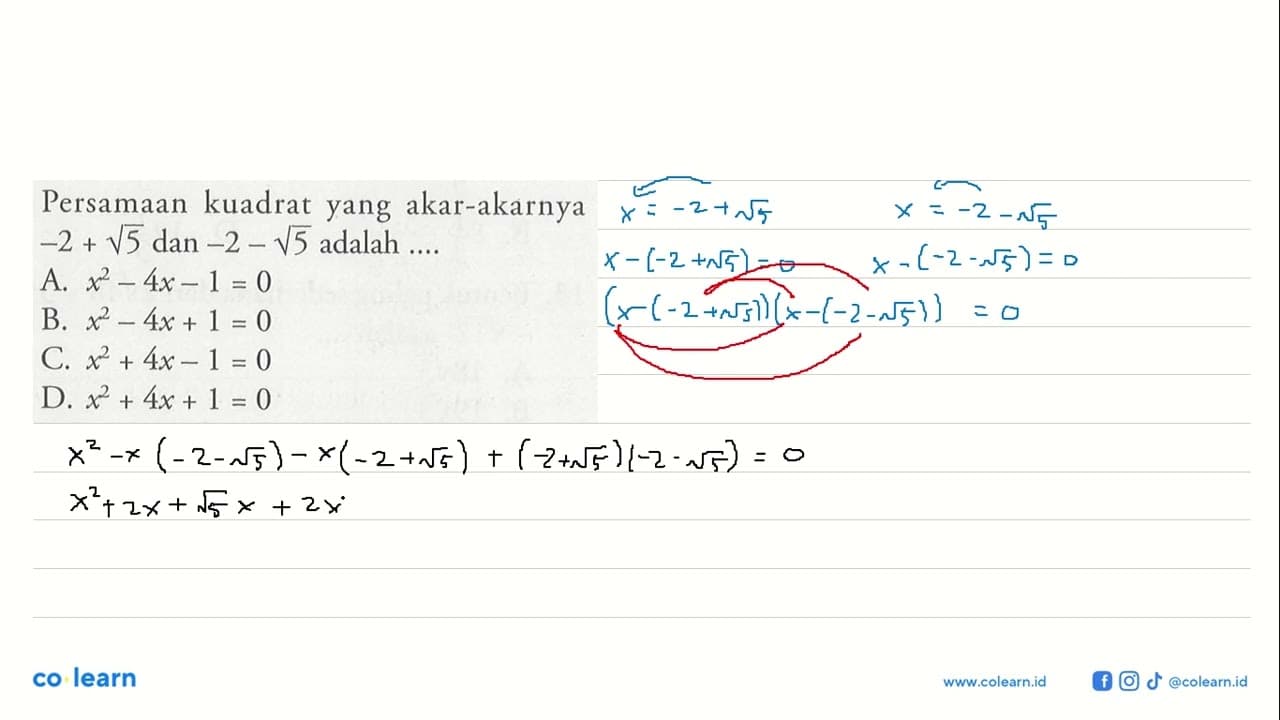 Persamaan kuadrat yang akar-akarnya
–2 + √5 dan –2 – √5 adalah ....
A. x² – 4x – 1 = 0
B. x² – 4x + 1 = 0
C. x² + 4x – 1 = 0
D. x² + 4x + 1 = 0
x = -2 + √5
x = -2 - √5
x - (-2 + √5) = 0
x - (-2 - √5) = 0
(x - (-2 + √5))(x - (-2 - √5)) = 0
x² - x (-2 - √5) - x (-2 + √5) + (-2 + √5)(-2 - √5) = 0
x² + 2x + √5 x + 2x
co learn
www.colearn.id
@colearn.id